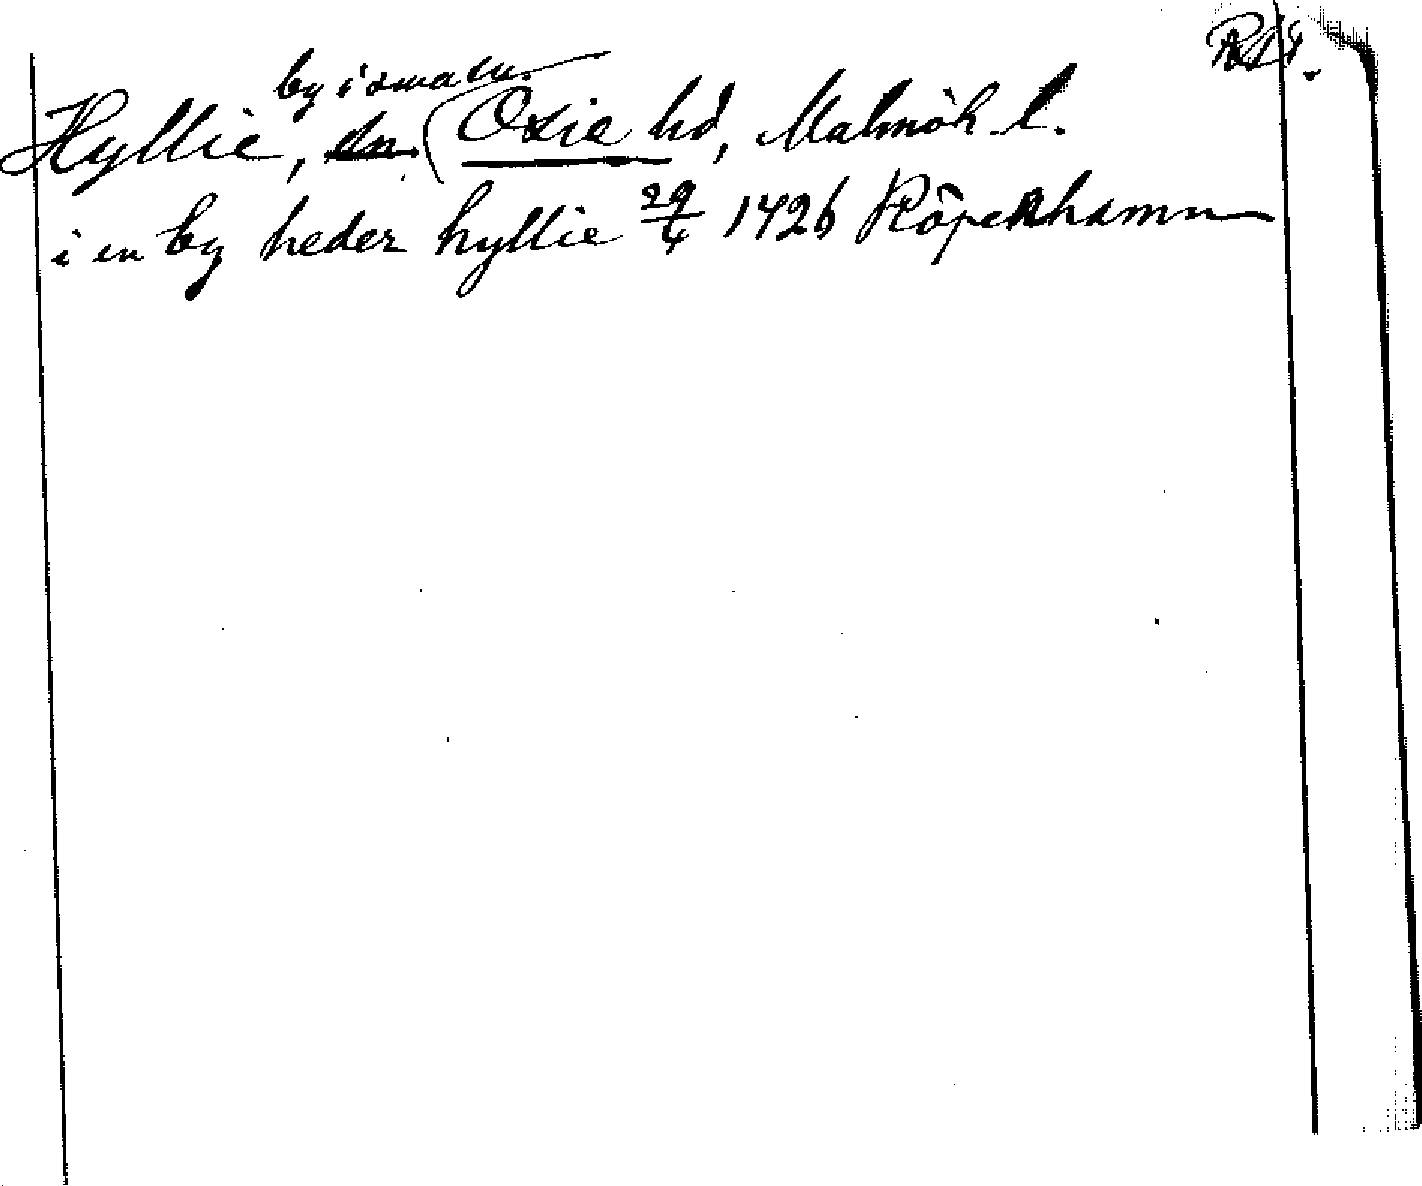 by i smalu.
Hyllie, sn. (Oxie hd, Malmöh. l.
i en by heder hyllie 29/4 1426 Köpenhamn